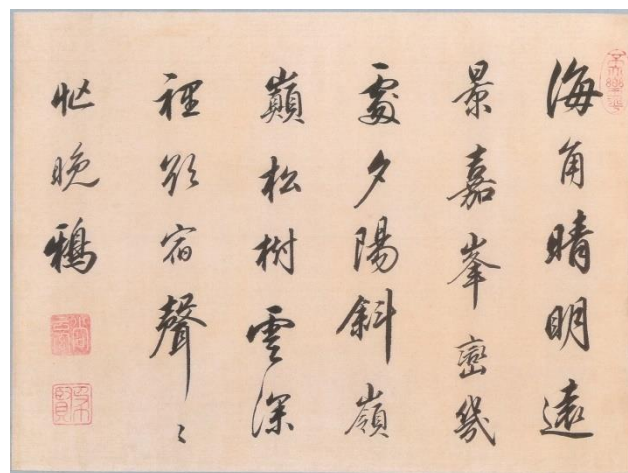 海角晴明遠
景嘉峯巒幾
處夕陽斜嶺
巔松樹雲深
裡欲宿聲〻
忙晚鴉